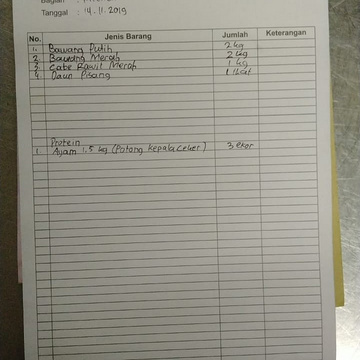 Bagian :
Tanggal : 14.11.2019
No. Jenis Barang Jumlah Keterangan
1. Bawang Putih 2 kg
2 Bawang Merah 2 kg
3 Cabe Rawit Merah 1 kg
4. Daun Pisang 1
Protein
1. Ayam 1.5 kg (Potong kepala Leher) 3 ekor